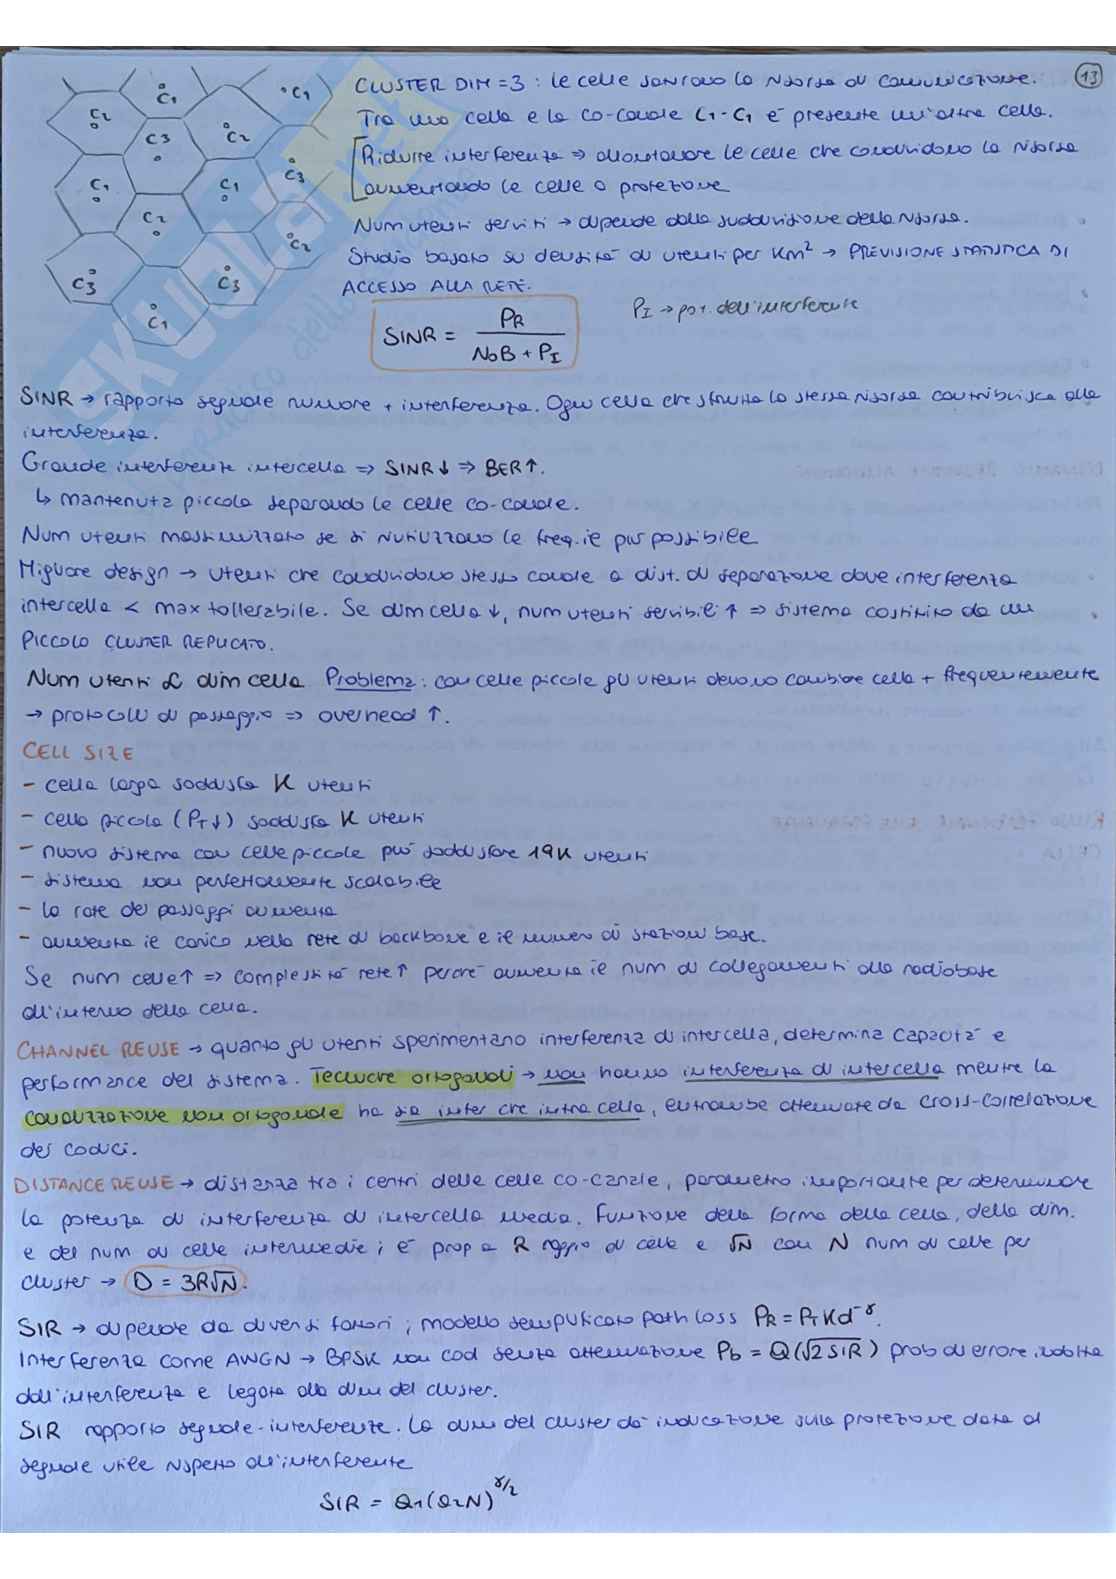 13
CLUSTER DIM = 3 : le celle sentono la risorsa di comunicazione.
Tra una cella e la co-canale C1-C1 è presente un'altra cella.
Ridurre interferenza => allontanare le celle che condividono la risorsa
aumentando le celle a protezione
Num utenti serviti → dipende dalla suddivisione della risorsa.
Studio basato su densità di utenti per Km² → PREVISIONE STATISTICA DI
ACCESSO ALLA RETE.
C2 C1 C1
C3 C2
C1 C1 C3
C2
C2
C3 C3
C1
SINR = PR / (N0B + PI)
PI → pot. dell'interferente
SINR → rapporto segnale rumore + interferenza. Ogni cella che sfrutta la stessa risorsa contribuisce alla
interferenza.
Grande interferente intercella => SINR↓ => BER↑.
↳ mantenuta piccola separando le celle co-canale.
Num utenti massimizzato se si riutilizzano le freq. il più possibile
Migliore design → utenti che condividono stesso canale a dist. di separazione dove interferenza
intercella < max tollerabile. Se dim cella ↓, num utenti servibili ↑ => sistema costituito da un
PICCOLO CLUSTER REPLICATO.
Num utenti α dim cella Problema: con celle piccole gli utenti devono cambiare cella + frequentemente
→ protocolli di passaggio => overhead ↑.
CELL SIZE
- cella larga soddisfa K utenti
- cella piccola (PT↓) soddisfa K utenti
- nuovo sistema con celle piccole può soddisfare 19K utenti
- sistema non perfettamente scalabile
- la rate dei passaggi aumenta
- aumenta il carico nella rete di backbone e il numero di stazioni base.
Se num celle↑ => complessità rete↑ perché aumenta il num di collegamenti alla radiobase
all'interno della cella.
CHANNEL REUSE → quanto gli utenti sperimentano interferenza di intercella, determina capacità e
performance del sistema. Tecniche ortogonali → non hanno interferenza di intercella mentre la
canalizzazione non ortogonale ha sia inter che intra cella, entrambe attenuate da cross-correlazione
dei codici.
DISTANCE REUSE → distanza tra i centri delle celle co-canale, parametro importante per determinare
la potenza di interferenza di intercella media. Funzione della forma della cella, della dim.
e del num di celle intermedie; è prop a R raggio di celle e √N con N num di celle per
cluster → D = 3R√N.
SIR → dipende da diversi fattori; modello semplificato path loss PR = PT K d^-γ.
Interferenza come AWGN → BPSK non cod senza attenuazione Pb = Q(√2SIR) prob di errore indotta
dall'interferenza e legata alla dim del cluster.
SIR rapporto segnale-interferenza. La dim del cluster dà indicazione sulla protezione data al
segnale utile rispetto all'interferente
SIR = a1(a2N)^γ/2